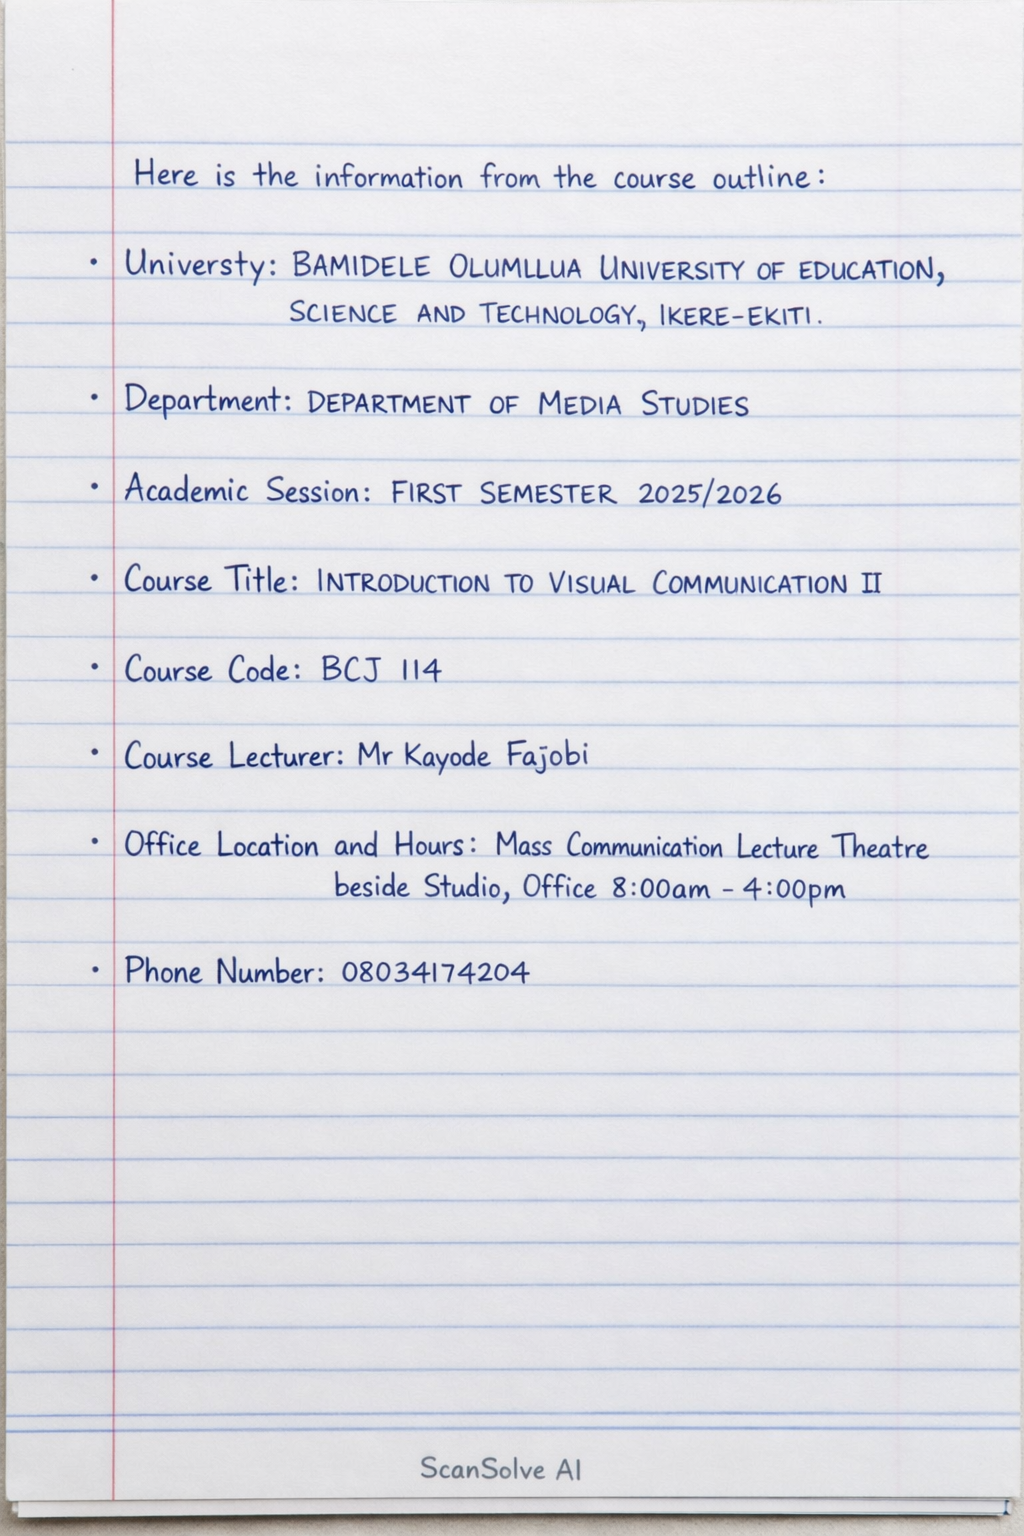 Here is the information from the course outline:
• Universty: BAMIDELE OLUMLLUA UNIVERSITY OF EDUCATION,
SCIENCE AND TECHNOLOGY, IKERE-EKITI.
• Department: DEPARTMENT OF MEDIA STUDIES
• Academic Session: FIRST SEMESTER 2025/2026
• Course Title: INTRODUCTION TO VISUAL COMMUNICATION II
• Course Code: BCJ 114
• Course Lecturer: Mr Kayode Fajobi
• Office Location and Hours: Mass Communication Lecture Theatre
beside Studio, Office 8:00am - 4:00pm
• Phone Number: 08034174204
ScanSolve AI